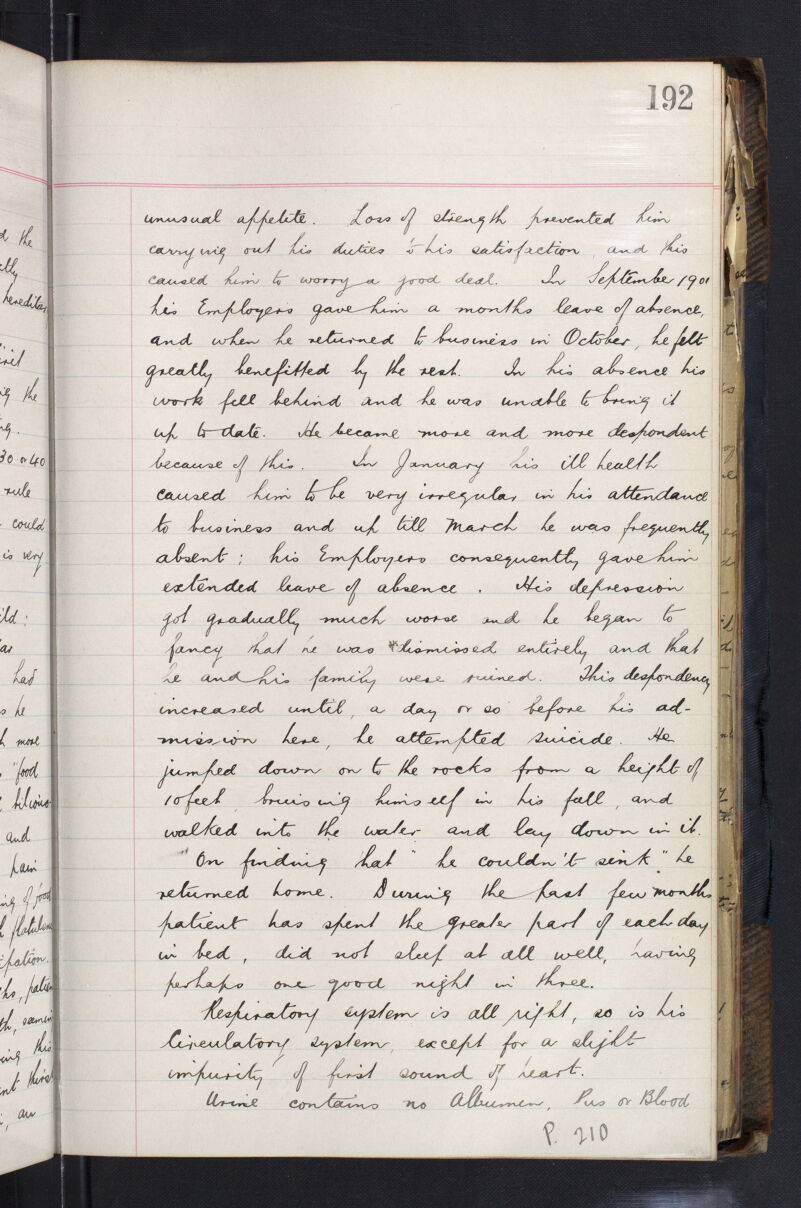 192
unusual appetite. Loss of strength prevented him
carrying out his duties to his satisfaction, and this
caused him to worry a good deal. In September 1901
his Employers gave him a months leave of absence,
and when he returned to business in October, he felt
greatly benefitted by the rest. In his absence his
work fell behind and he was unable to bring it
up to date. He became more and more despondent
because of this. In January his ill health
caused him to be very irregular in his attendance
to business and up till March he was frequently
absent; his Employers consequently gave him
extended leave of absence. His depression
got gradually much worse and he began to
fancy that he was dismissed entirely and that
he and his family were ruined. This despondency
increased until, a day or so before his ad-
mission here, he attempted suicide. He
jumped down on to the rocks from a height of
10 feet, bruising himself in his fall, and
walked into the water and lay down in it.
On finding that "he couldn't sink" he
returned home. During the past few months
patient has spent the greater part of each day
in bed, did not sleep at all well, having
perhaps one good night in three.
Respiratory system is all right, so is his
Circulatory system, except for a slight
impurity of first sound of heart.
Urine contains no Albumen, Pus or Blood
P. 210
d the
hereditary
ng the
30 or 40
rule
could
is very
had
s he
more
"food
and
pain
ing of food
ing this
an